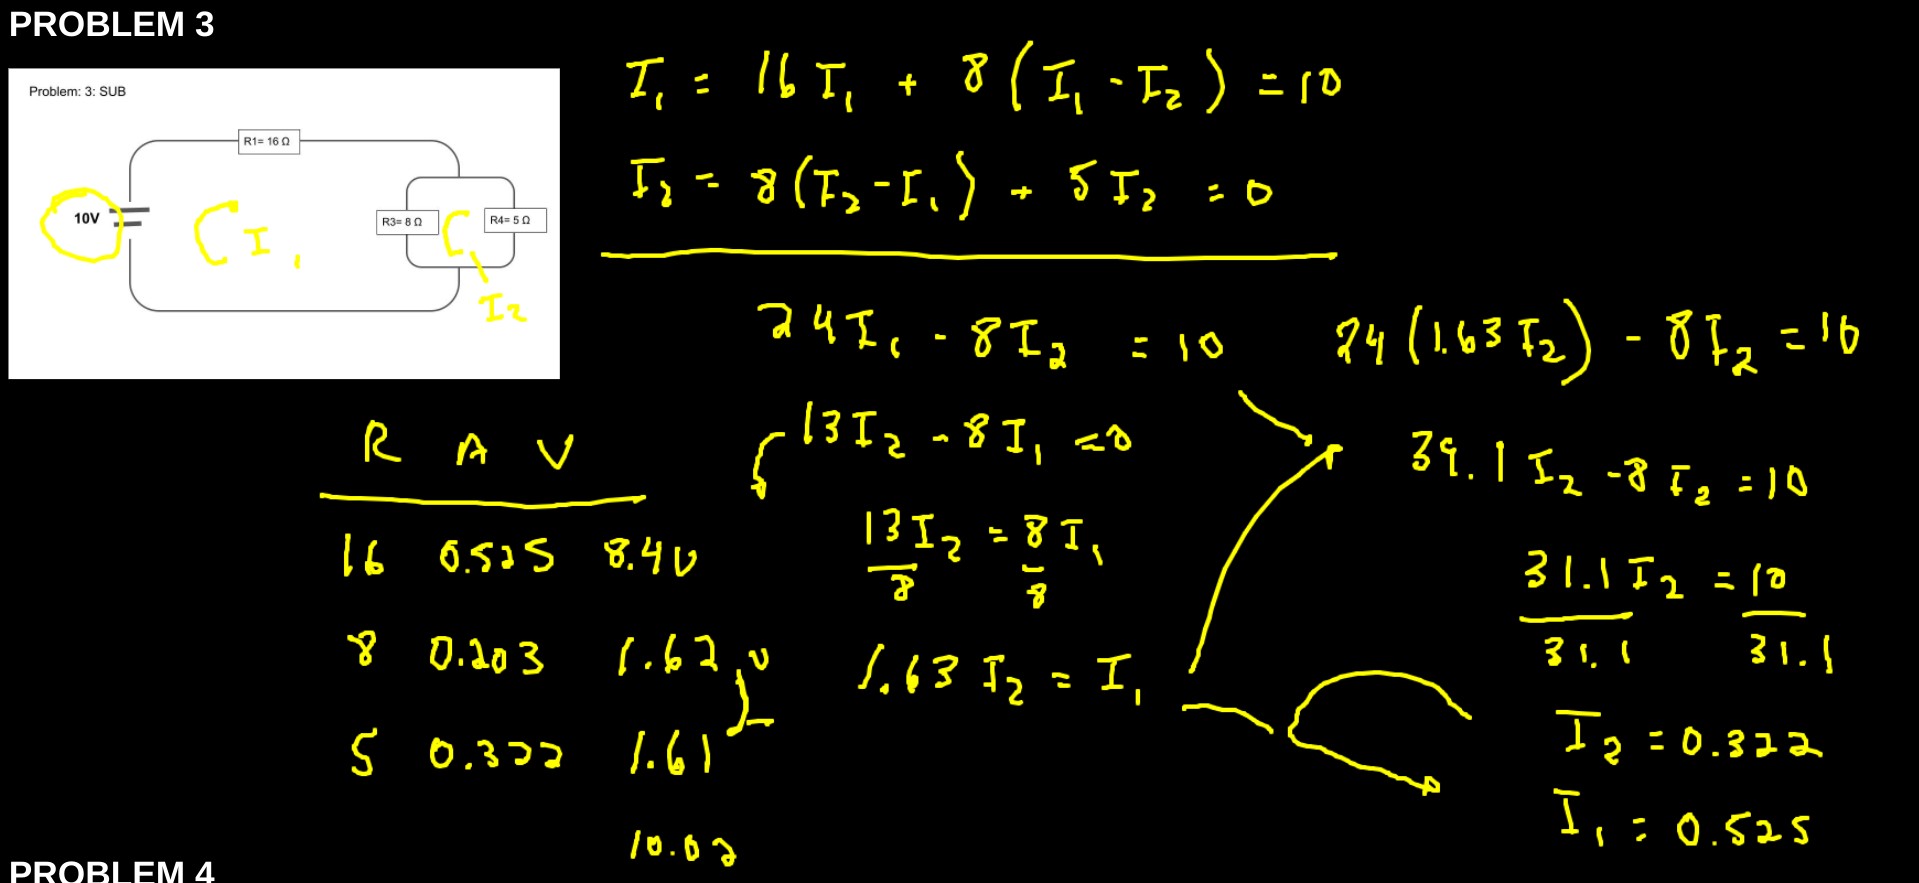 PROBLEM 3
Problem: 3: SUB
R1= 16 Ω
10V
R3= 8 Ω
R4= 5 Ω
I1
I2
I1 = 16 I1 + 8 (I1 - I2) = 10
I2 = 8 (I2 - I1) + 5 I2 = 0
24 I1 - 8 I2 = 10
13 I2 - 8 I1 = 0
13 I2 = 8 I1
8 8
1.63 I2 = I1
24 (1.63 I2) - 8 I2 = 10
39.1 I2 - 8 I2 = 10
31.1 I2 = 10
31.1 31.1
I2 = 0.322
I1 = 0.525
R A V
16 0.525 8.4 V
8 0.203 1.62 V
5 0.322 1.61
10.02
PROBLEM 4